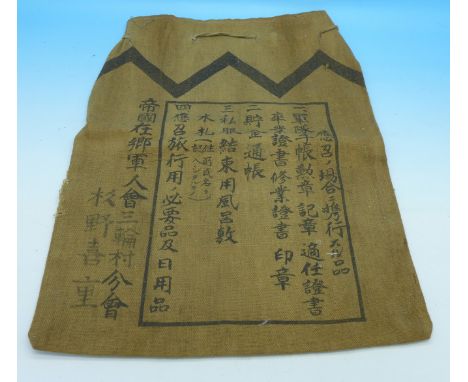 應召ノ場合ニ携行スベキ品
一、軍隊手帳勲章記章適任證書
卒業證書修業證書印章
二、貯金通帳
三、私服結束用風呂敷
木札(住所氏名ヲ記入シタルモノ)
四、應召旅行用ノ必要品及日用品
帝國在郷軍人會三輪村分會
杉野喜重